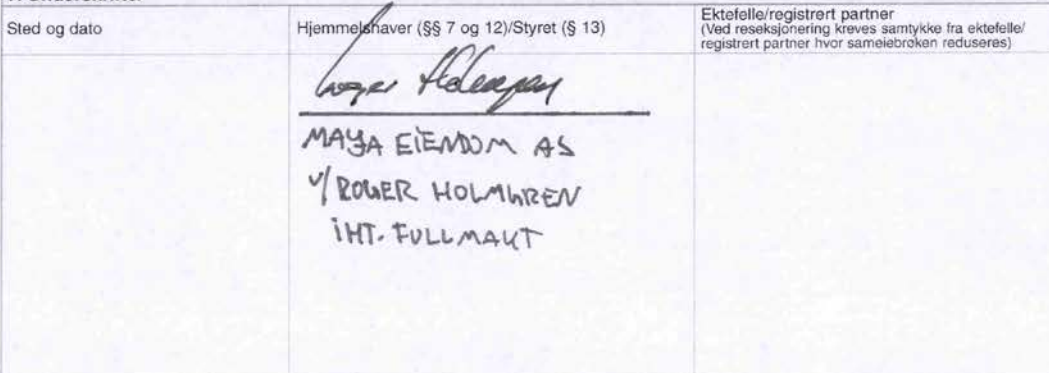 Sted og dato
Hjemmelshaver (§§ 7 og 12)/Styret (§ 13)
Ektefelle/registrert partner
(Ved reseksjonering kreves samtykke fra ektefelle/
registrert partner hvor sameiebrøken reduseres)
MAYA EIENDOM AS
V/ ROGER HOLMGREN
IHT. FULLMAKT